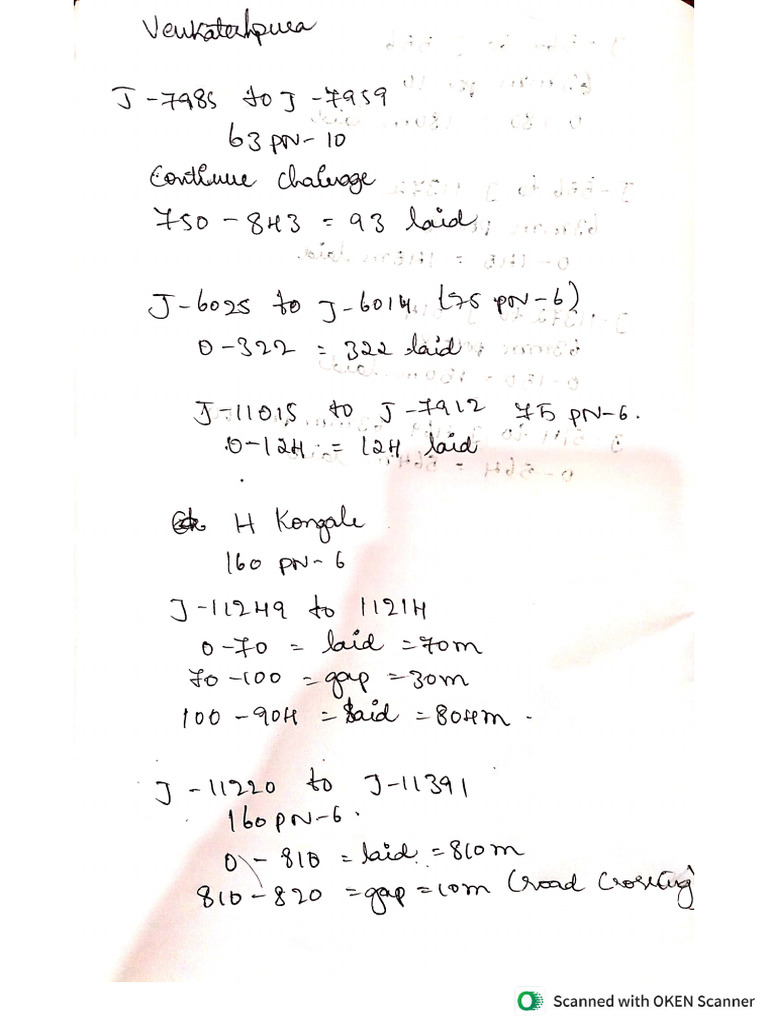 Venkateshpura
J-7985 to J-7959
63 PN-10
Continue chainage
750 - 843 = 93 laid
J-6025 to J-6014 (75 PN-6)
0-322 = 322 laid
J-11015 to J-7912 75 PN-6.
0-124 = 124 laid
H Kongale
160 PN-6
J-11249 to 11214
0-70 = laid = 70m
70-100 = gap = 30m
100-904 = laid = 804m.
J-11220 to J-11391
160 PN-6.
0-810 = laid = 810m
810-820 = gap = 10m (road crossing)
Scanned with OKEN Scanner